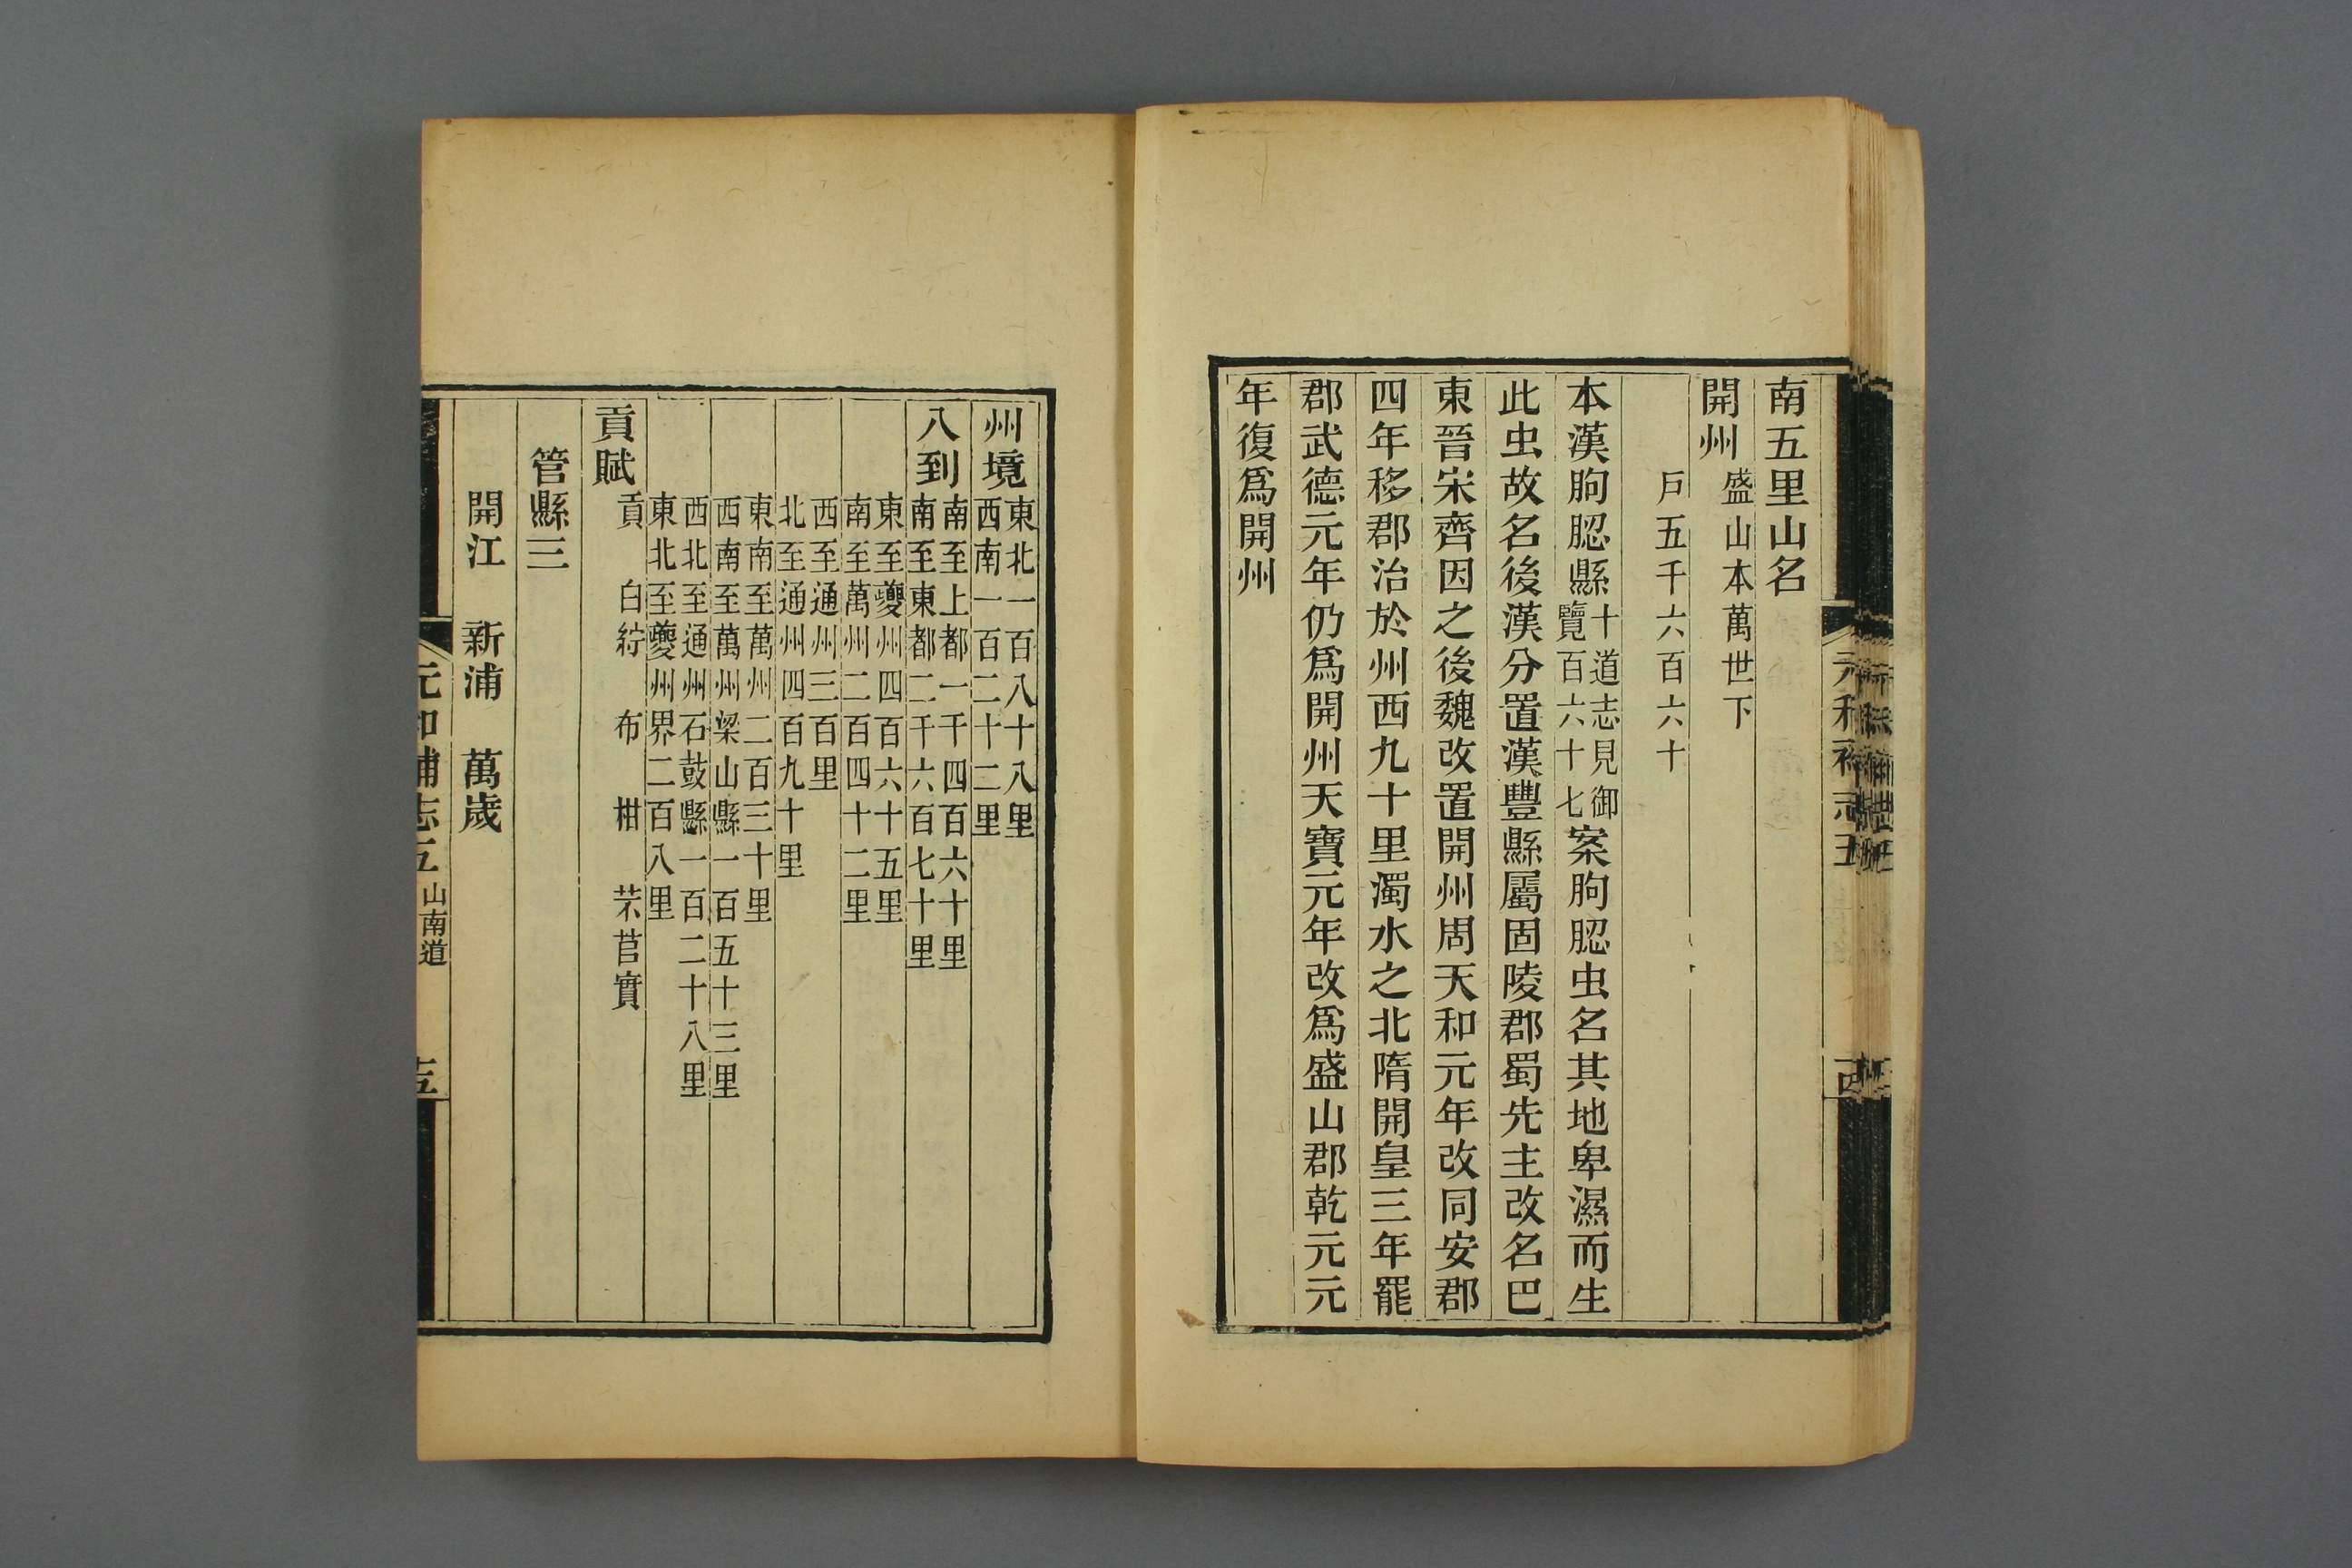 南五里山名
開州
盛山本萬世下
戶五千六百六十
本漢朐䏰縣十道志見御覽百六十七案朐䏰虫名其地卑濕而生
此虫故名後漢分置漢豐縣屬固陵郡蜀先主改名巴
東晉宋齊因之後魏改置開州周天和元年改同安郡
四年移郡治於州西九十里濁水之北隋開皇三年罷
郡武德元年仍爲開州天寶元年改爲盛山郡乾元元
年復爲開州
州境
東北一百八十八里
西南一百二十二里
八到
南至上都一千四百六十里
南至東都二千六百七十里
東至夔州四百六十五里
南至萬州二百四十二里
西至通州三百里
北至通州四百九十里
東南至萬州二百三十里
西南至萬州梁山縣一百五十三里
西北至通州石鼓縣一百二十八里
東北至夔州界二百八里
貢賦
貢 白紵布 柑 芣苢實
管縣三
開江 新浦 萬歲
元和補志五 山南道